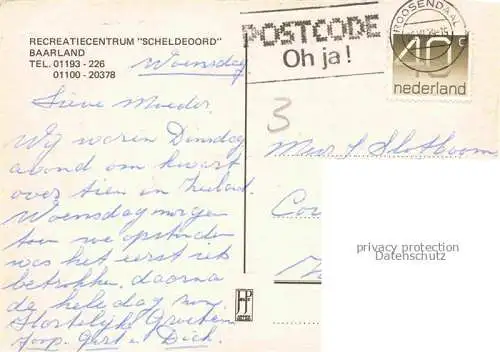 RECREATIECENTRUM "SCHELDEOORD"
BAARLAND
TEL. 01193 - 226
01100 - 20378
Woensdag
Lieve Moeder.
Wij waren Dinsdag
avond om kwart
over tien in Zeeland.
Woensdag morgen
toen we opstonden
was het eerst iets
betrokken daarna
de hele dag zon.
Hartelijke Groeten
Joop. Gert en Dick.
POSTCODE
Oh ja!
ROOSENDAAL
40 c
nederland
3
Mevr
privacy protection
Datenschutz